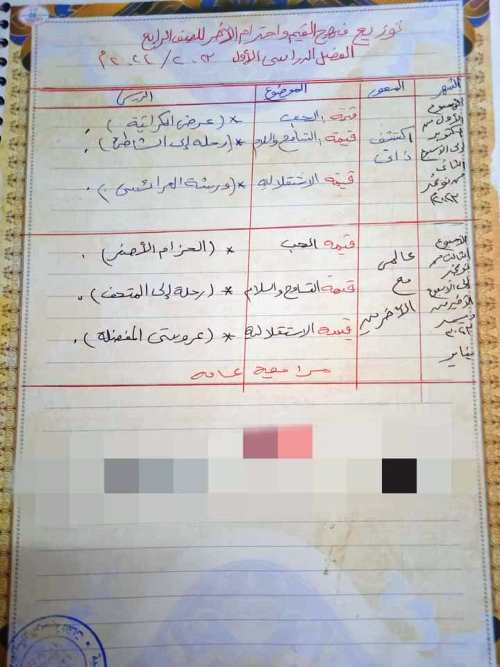 توزيع منهج القيم واحترام الآخر للصف الرابع
الفصل الدراسى الأول ٢٠٢٣/٢٠٢٢م
الشهر المحور الموضوع الدرس
الأسبوع الأول من أكتوبر إلى الأسبوع الثانى من نوفمبر ٢٠٢٣
اكتشف ذاتى
قيمة الحب * (عرض الكراتيه).
قيمة التسامح والسلام * (رحلة إلى الشاطئ).
قيمة الاستقلالية * (ورشة العرائس).
الأسبوع الثالث من نوفمبر إلى الأسبوع الأخير من ديسمبر ٢٠٢٣
عالمى مع الآخرين
قيمة الحب * (الحزام الأصفر).
قيمة التسامح والسلام * (رحلة إلى المتحف).
قيمة الاستقلالية * (عروستى المفضلة).
يناير مراجعة عامة